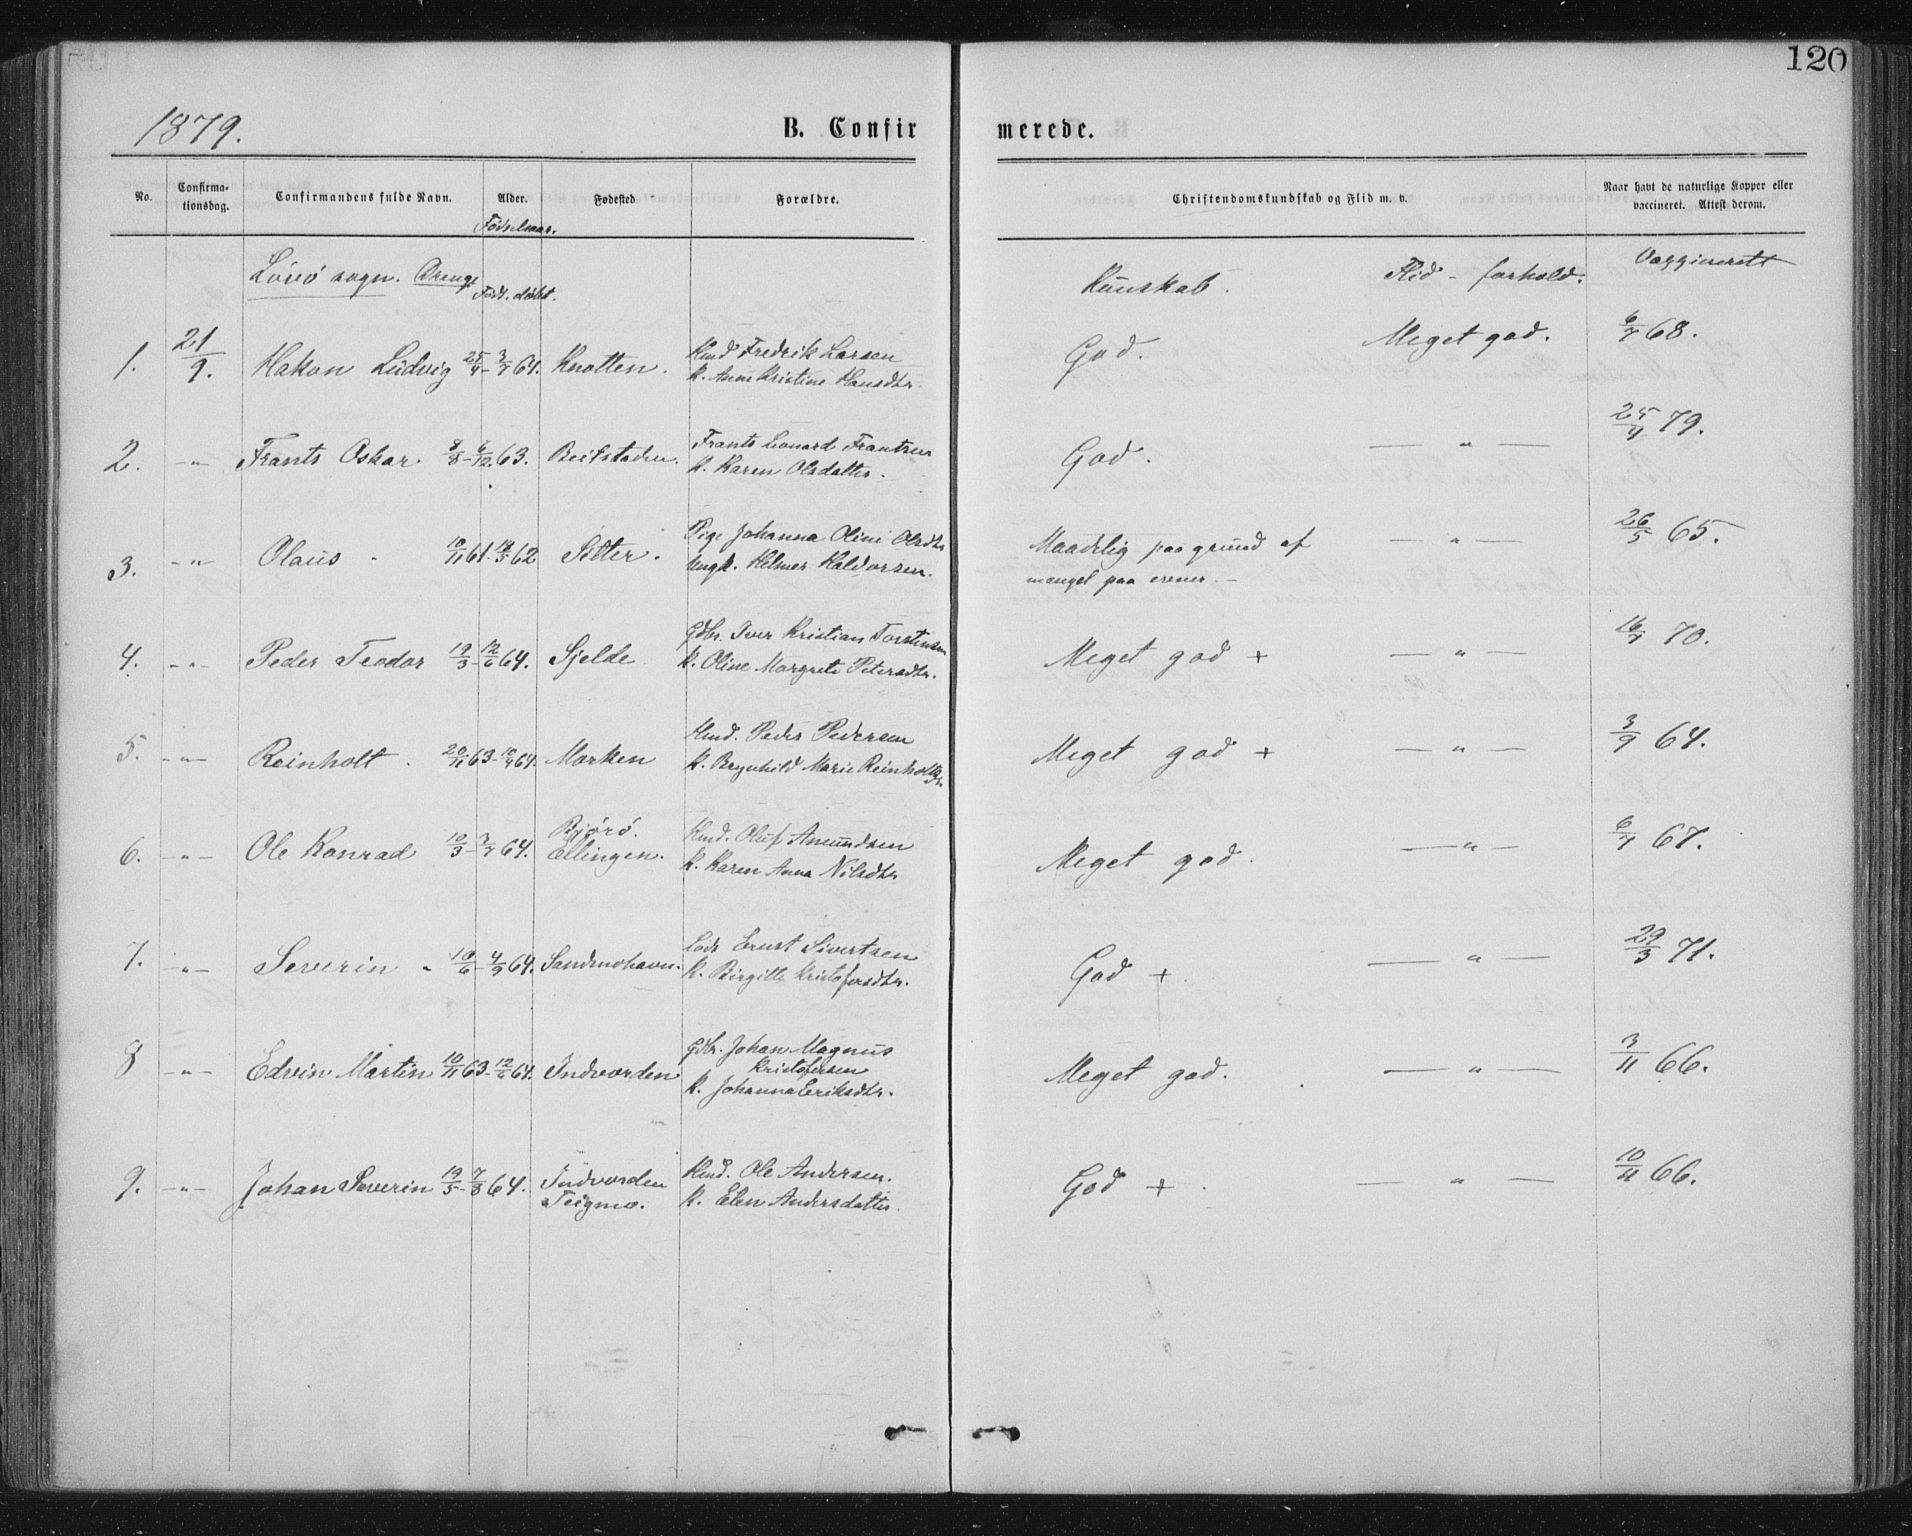 120
1879.
B. Confir merede.
No. Confirma-tionsdag. Confirmandens fulde Navn. Alder. Fødested Forældre. Christendomskundskab og Flid m. v. Naar havt de naturlige Kopper eller vaccineret. Attest derom.
Fødselsaar.
Lövö sogn. Drenge Født. døbt. Kunskab. Flid - forhold. Vaggineret
1. 21/9. Hakon Ludvig 25/4 - 3/7 64. Knotten. Hmd Fredrik Larsen God. Meget god. 6/7 68.
K. Anne Kristine Hansdtr.
2. -"- Frants Oskar. 8/8 - 6/12 63. Beitstaden. Frants Leonard Frantsen God. — " — 25/9 79.
K. Karen Olsdatter.
3. -"- Olaus 10/11 61 - 18/5 62 Sitter. Pige Johanna Oline Olsdtr Maadelig paa grund af — " — 26/5 65.
Ungk. Helmer Haldorsen. mangel paa evner. -
4. -"- Peder Teodor 19/3 - 12/6 64. Sjelde Gdbr. Iver Kristian Torstensen Meget god + — " — 16/7 70.
K. Oline Margrete Petersdtr.
5. -"- Reinholt. 20/11 63 - 10/4 64. Morken Hmd. Peder Pedersen Meget god + — " — 3/9 64.
K. Brynhild Marie Reinholtsdtr.
6. -"- Ole Konrad 10/3 - 3/7 64. Bjørø. Ellingen. Hmd. Oluf Amundsen Meget god. — " — 6/7 67.
K. Karen Anna Nilsdtr
7. -"- Severin 10/6 - 4/9 64. Sandmohavn. Lods Ernst Sivertsen God + — " — 29/3 71.
K. Birgitte Kristofersdtr.
8 -"- Edvin Martin 10/11 63 - 12/6 64. Indvorden Gdbr. Johan Magnus Meget god. — " — 3/11 66.
Kristofersen
K. Johanna Eriksdtr.
9. -"- Johan Severin 19/5 - 7/8 64. Indvorden Hmd. Ole Andersen. God + — " — 10/11 66.
Teigmo. K. Elen Andersdatter.